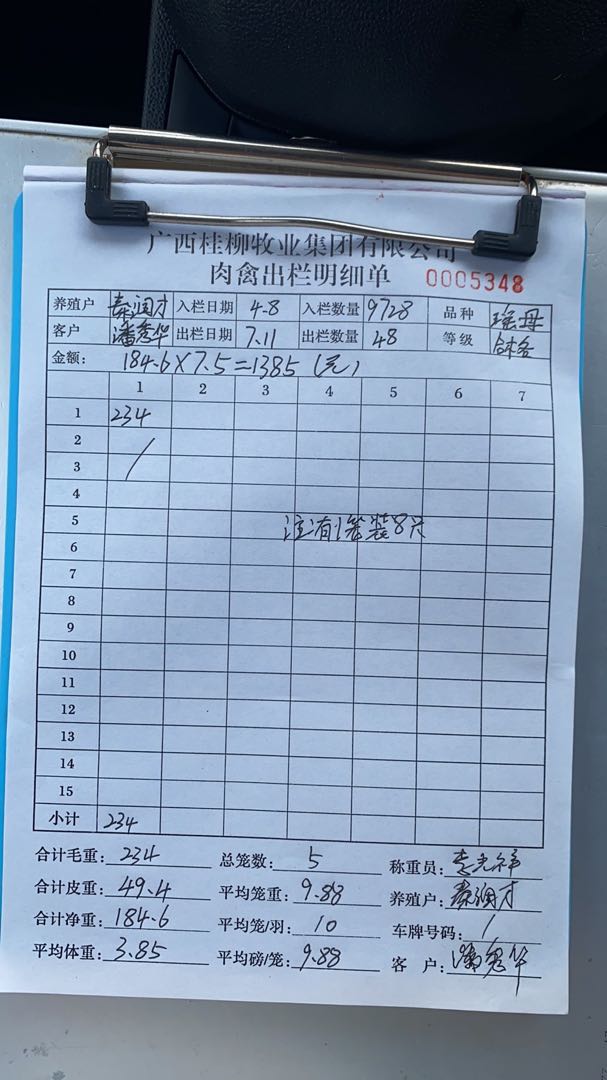 广西桂柳牧业集团有限公司
肉禽出栏明细单 0005348
养殖户 秦润才 入栏日期 4-8 入栏数量 9728 品种 瑶母
客户 潘秀华 出栏日期 7.11 出栏数量 48 等级
金额: 184.6×7.5=1385(元)
1 2 3 4 5 6 7
1 234
2
3 /
4
5 注有1笼装8只
6
7
8
9
10
11
12
13
14
15
小计 234
合计毛重: 234 总笼数: 5 称重员:
合计皮重: 49.4 平均笼重: 9.88 养殖户: 秦润才
合计净重: 184.6 平均笼/羽: 10 车牌号码: /
平均体重: 3.85 平均磅/笼: 9.88 客 户: 潘秀华